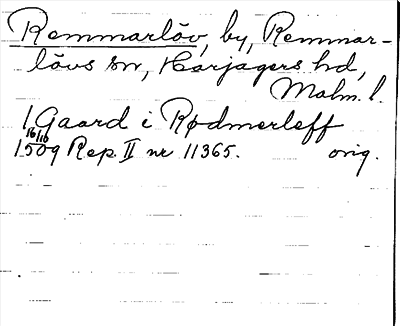 Remmarlöv, by, Remmar-
lövs sn, Harjagers hd,
Malm. l.
1 Gaard i Rødmerleff
1509 16/10 Rep. II nr 11365. orig.